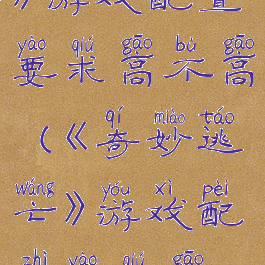 》游戏配置
yào qiú gāo bù gāo
要求高不高
qí miào táo
(《奇妙逃
wáng yóu xì pèi
亡》游戏配
zhì yào qiú gāo